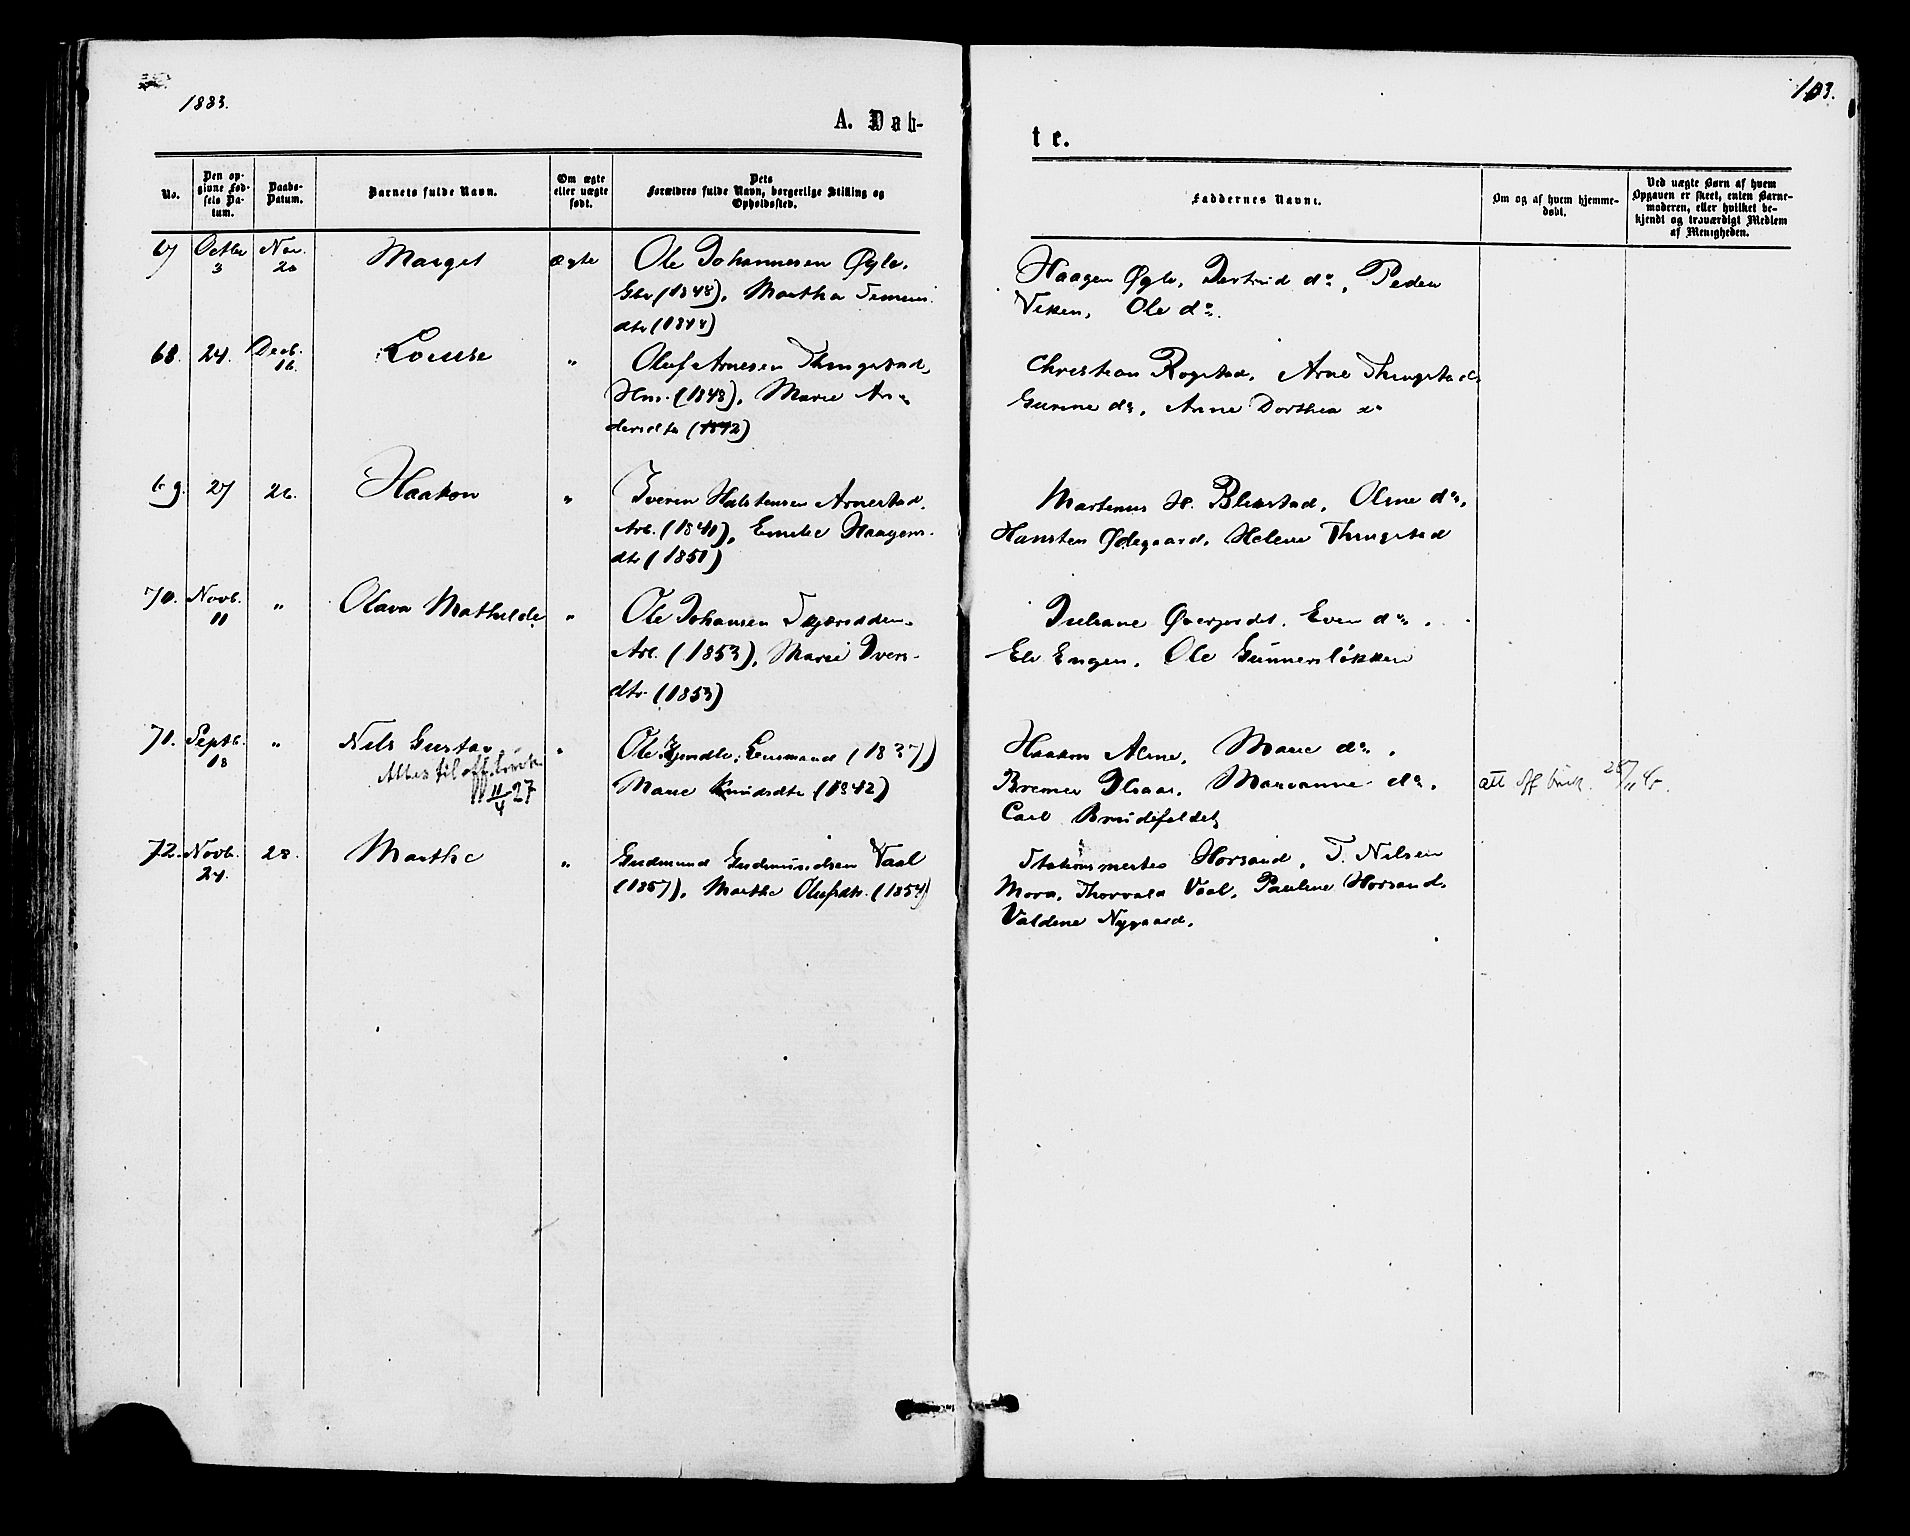 1883.
103.
A. Døb-
te.
No.
Den op-
givne Fød-
sels Da-
tum.
Daabs-
Datum.
Barnets fulde Navn.
Om ægte
eller uægte
født.
Dets
Forældres fulde Navn, borgerlige Stilling og
Opholdssted.
Faddernes Navne.
Om og af hvem hjemme-
døbt.
Ved uægte Børn af hvem
Opgaven er skeet, enten Barne-
moderen, eller hvilket be-
kjendt og troværdigt Medlem
af Menigheden.
67 Octbr 3 Nov. 20 Marget ægte Ole Johannesen Øgle,
Gbr (1848), Martha
dtr (1844)
Haagen Øgle, Jertrud do, Peder
Viken, Ole do.
68. 24. Decb. 16. Louise " Oluf Arnesen Thingstad,
Hm. (1848), Marie An-
dersdtr (1842)
Christian Rogstad, Arne Thingstad,
Gunne do, Anne Dorthea do
69. 27 26. Haakon " Iveren Halstensen Arnestad,
Arb. (1840), Emelie Haagens-
dtr (1850)
Martinus H. Blestad, Oline do,
Hansten Ødegaard, Helene Thingstad
70. Novb. 11 " Olava Mathilde " Ole Johansen
Arb. (1853), Marie Iven-
dtr (1853)
Juliane Øverjordet, Even do.
Eli Engen, Ole Gunnersløkken
71. Septb. 18 " Nils Gustav " Ole Kjendli, Lensmand (1837)
Attest til off. bruk
11/4 27
Marie Knudsdtr (1842)
Haakon Alme, Marie do,
Bremer Ilsaas, Marianne do,
Carl Brudefeldet
att off bruk. 28/11 40.
72. Novb. 24. 28. Marthe " Gudmund Gudmundsen Vaal
(1857), Marthe Olufsdtr. (1854)
Horsand, T. Nilsen
Mora, Thorvald Vaal, Pauline Horsand,
Valdine Nygaard.